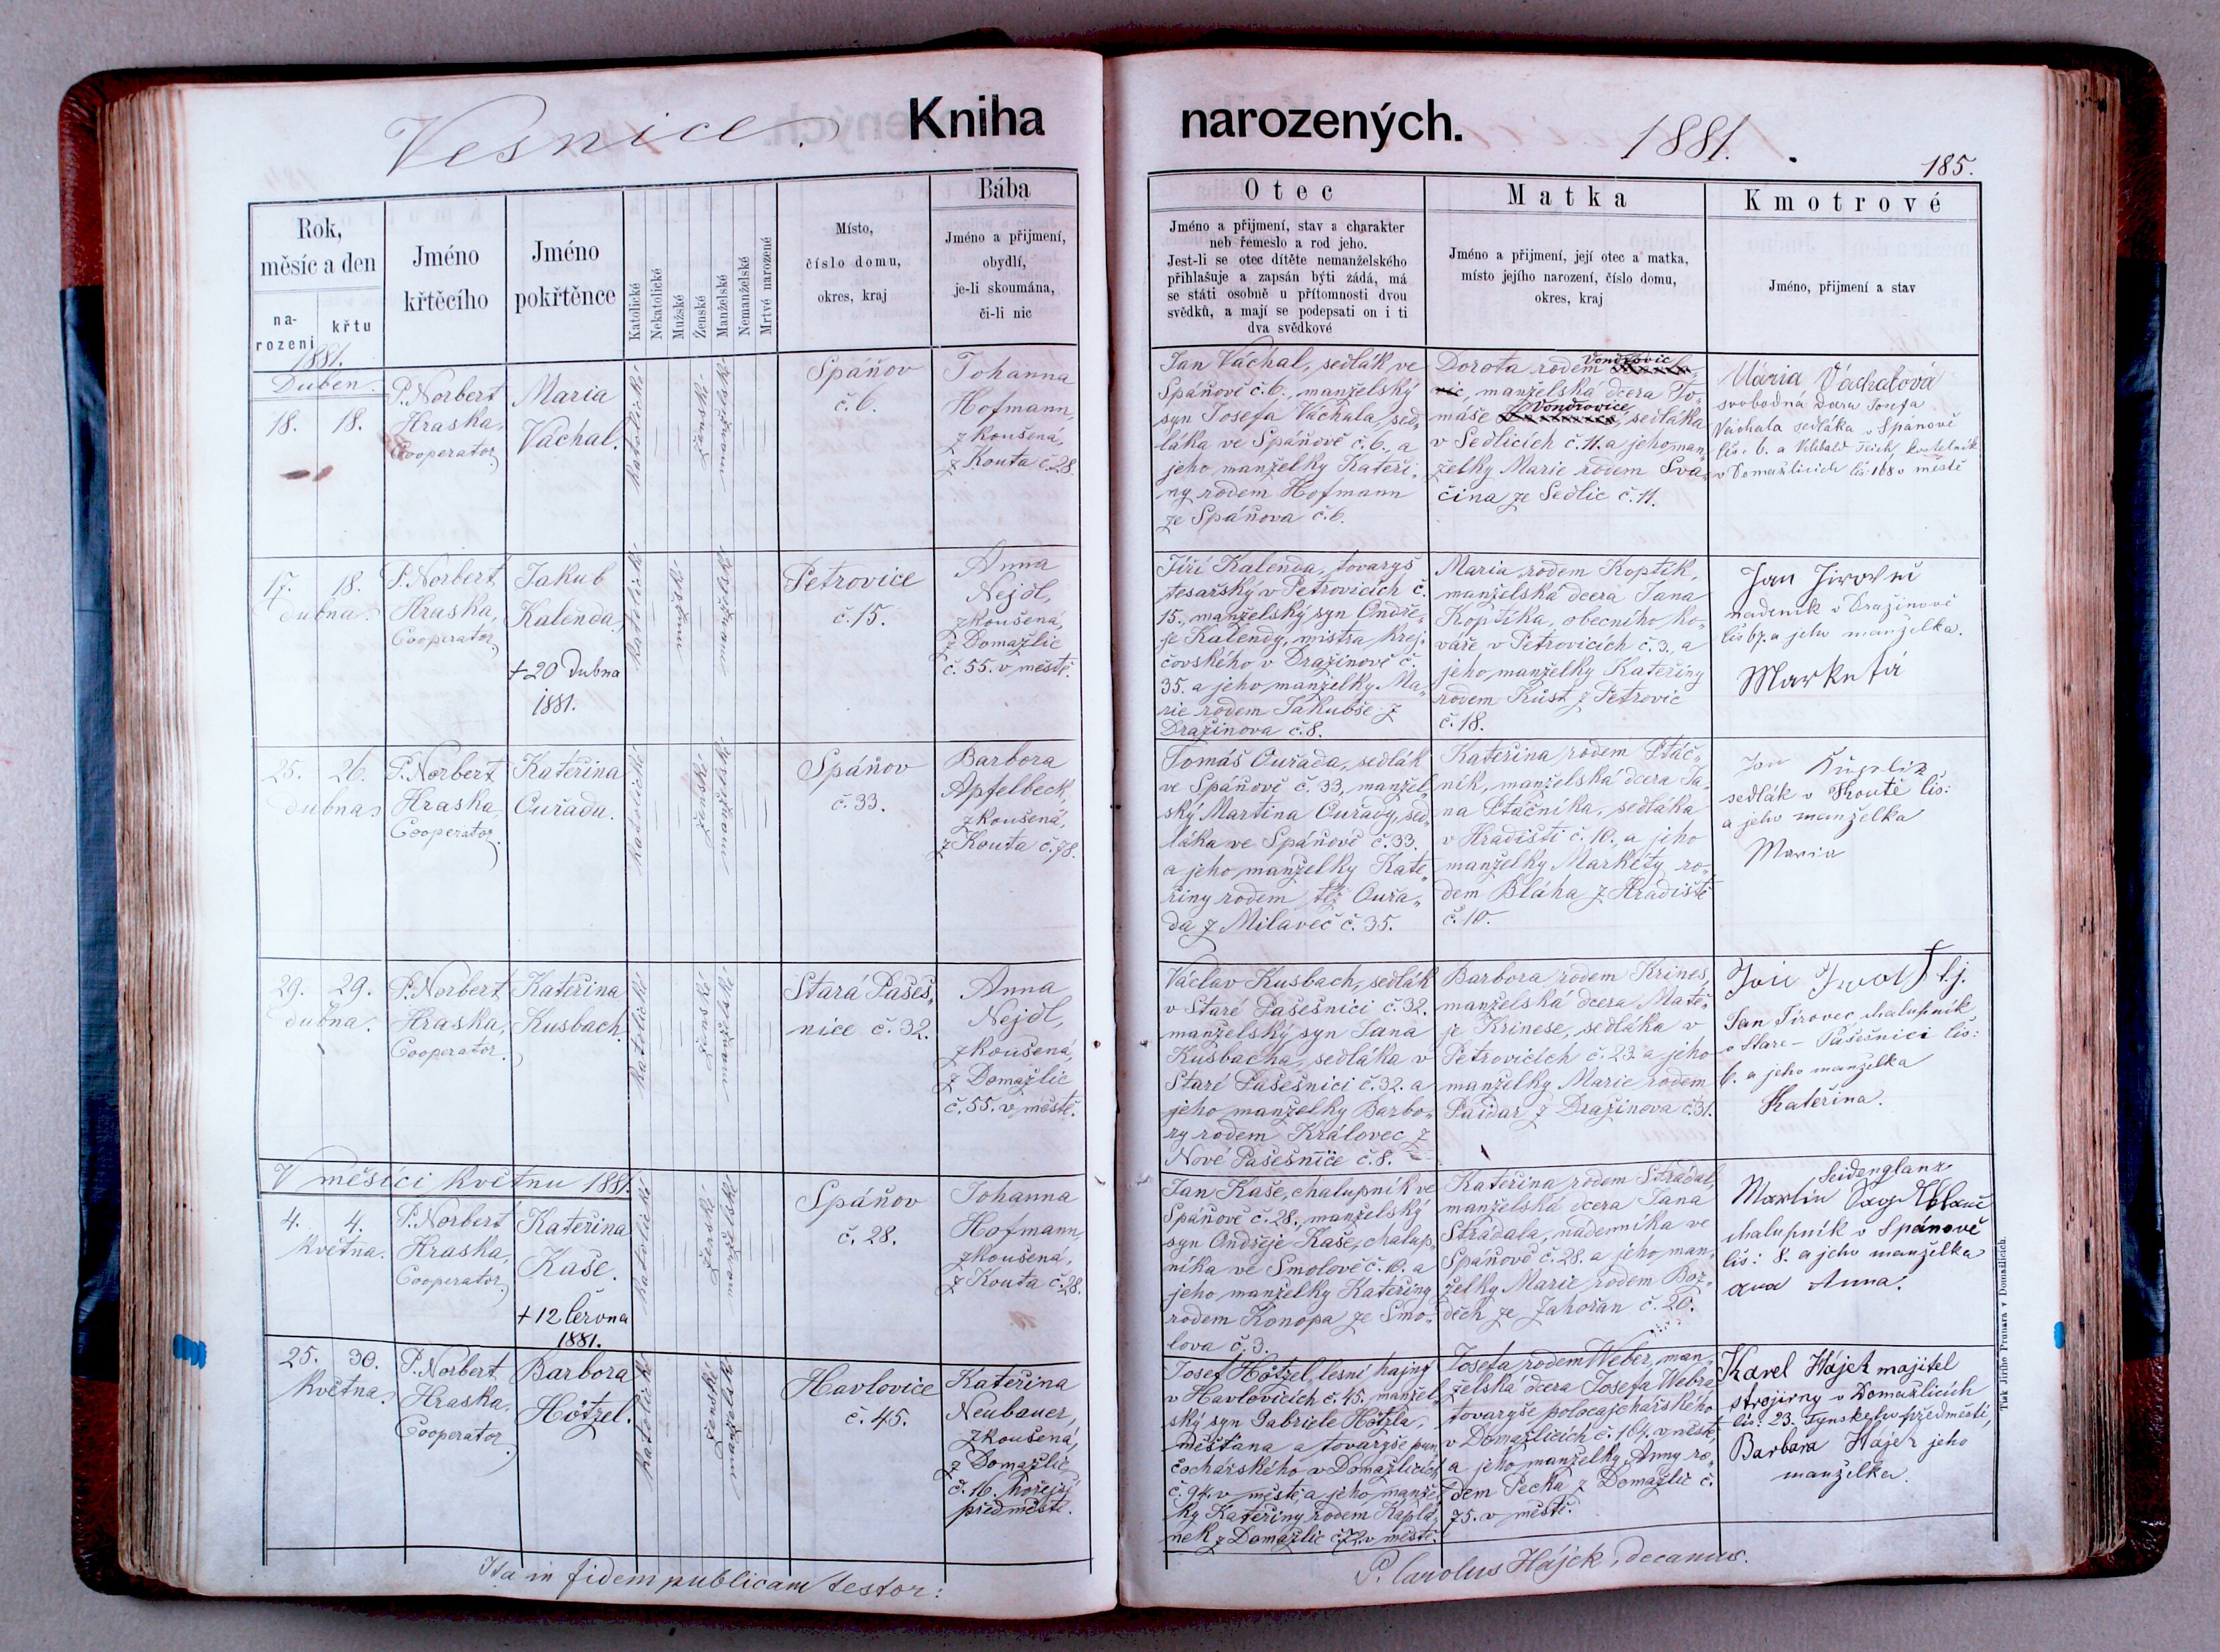 Vesnice. Kniha narozených. 1881.
185.
Rok,
měsíc a den
na-
rozeni
křtu
Jméno
křtěcího
Jméno
pokřtěnce
Katolické
Nekatolické
Mužské
Ženské
Manželské
Nemanželské
Mrtvé narozené
Místo,
číslo domu,
okres, kraj
Bába
Jméno a přijmení,
obydlí,
je-li skoumána,
či-li nic
Otec
Jméno a přijmení, stav a charakter
neb řemeslo a rod jeho.
Jest-li se otec dítěte nemanželského
přihlašuje a zapsán býti žádá, má
se státi osobně u přítomnosti dvou
svědků, a mají se podepsati on i ti
dva svědkové
Matka
Jméno a přijmení, její otec a matka,
místo jejího narození, číslo domu,
okres, kraj
Kmotrové
Jméno, přijmení a stav
1881.
Duben.
18. 18.
P. Norbert
Hraska,
Cooperator
Maria
Váchal.
katolické
ženské
manželské
Spáňov
č. 6.
Johanna
Hofmann,
zkoušená,
z Kouta č. 28.
Jan Váchal, sedlák ve
Spáňově č. 6., manželský
syn Josefa Váchala, sed-
láka ve Spáňově č. 6., a
jeho manželky Kateři-
ny rodem Hofmann
ze Spáňova č. 6.
Dorota rodem Vondrovic
manželská dcera To-
máše Vondrovice, sedláka
v Sedlicích č. 11. a jeho man-
želky Marie rodem Sva-
čina ze Sedlic č. 11.
Maria Váchalová
svobodná dcera Josefa
Váchala sedláka v Spánově
čís. 6. a Vilibald
v Domažlicích čís: 168 v městě
17. 18.
dubna.
P. Norbert
Hraska,
Cooperator
Jakub
Kalenda.
+ 20 dubna
1881.
katolické
mužské
manželské
Petrovice
č. 15.
Anna
Nejdl,
zkoušená,
z Domažlic
č. 55. v městě.
Jiří Kalenda, tovaryš
tesařský v Petrovicích č.
15., manželský syn Ondře-
je Kalendy, mistra krej-
čovského v Dražinově č.
35. a jeho manželky Ma-
rie rodem Jakubše z
Dražinova č. 8.
Maria rodem Koptik,
manželská dcera Jana
Koptika, obecního ko-
váře v Petrovicích č. 3., a
jeho manželky Kateřiny
rodem Kůst z Petrovic
č. 18.
Jan
nádeník v Dražinově
čís 67. a jeho manželka.
Marketa
25. 26.
dubna
P. Norbert
Hraska,
Cooperator.
Kateřina
Ouřada.
katolické
ženské
manželské
Spáňov
č. 33.
Barbora
Apfelbeck,
zkoušená,
z Kouta č. 78.
Tomáš Ouřada, sedlák
ve Spáňově č. 33, manžel-
ský Martina Ouřady, sed-
láka ve Spáňově č. 33.
a jeho manželky Kate-
řiny rodem též Ouřa-
da z Milaveč č. 35.
Kateřina rodem Ptáč-
ník, manželská dcera Ja-
na Ptáčníka, sedláka
v Hradišti č. 10., a jeho
manželky Markéty ro-
dem Bláha z Hradiště
č. 10.
Jan
sedlák v Koutě čís:
a jeho manželka
Maria
29. 29.
dubna.
P. Norbert
Hraska,
Cooperator.
Kateřina
Kusbach.
katolické
ženské
manželské
Stará Pašeš-
nice č. 32.
Anna
Nejdl,
zkoušená,
z Domažlic
č. 55. v městě.
Václav Kusbach, sedlák
v Staré Pašešnici č. 32.
manželský syn Jana
Kusbacha, sedláka v
Staré Pašešnici č. 32. a
jeho manželky Barbo-
ry rodem Královec z
Nové Pašešnice č. 8.
Barbora rodem Krines,
manželská dcera Matě-
je Krinese, sedláka v
Petrovicích č. 23. a jeho
manželky Marie rodem
Paidar z Dražinova č. 31.
tj.
Jan Jirovec chalupník
v Staré-Pašešnici čís:
6. a jeho manželka
Kateřina.
V měsíci květnu 1881.
4. 4.
května.
P. Norbert
Hraska,
Cooperator
Kateřina
Kaše.
+ 12 června
1881.
katolické
ženské
manželské
Spáňov
č. 28.
Johanna
Hofmann,
zkoušená,
z Kouta č. 28.
Jan Kaše, chalupník ve
Spáňově č. 28., manželský
syn Ondřeje Kaše, chalup-
níka ve Smolově č. 10. a
jeho manželky Kateřiny
rodem Konopa ze Smo-
lova č. 3.
Kateřina rodem Stradal,
manželská dcera Jana
Strádala, nádenníka ve
Spáňově č. 28. a jeho man-
želky Marie rodem Boz-
děch ze Zahořan č. 20.
Seidenglanz
Martin
chalupník v Spánově
čís: 8. a jeho manželka
Anna.
25. 30.
května
P. Norbert
Hraska,
Cooperator
Barbora
Hötzel.
katolické
ženské
manželské
Havlovice
č. 45.
Kateřina
Neubauer,
zkoušená,
z Domažlic
č. 16. hořejší
předměstí.
Josef Hötzel, lesní hajný
v Havlovicích č. 45. manžel-
ský syn Gabriele Hötzla,
měšťana a tovaryše pun-
čochářského v Domažlicích
č. 94. v městě, a jeho manžel-
ky Kateřiny rodem Káplá-
nek z Domažlic č. 72. v městě.
Josefa rodem Weber, man-
želská dcera Josefa Webra
tovaryše
v Domažlicích č. 164. v městě
a jeho manželky Anny ro-
dem Pecka z Domažlic č.
75. v městě.
Karel Hájek majitel
strojírny v Domažlicích
čís: 23. Týnského předměstí,
Barbara Hájek jeho
manželka.
Tisk Jiřího Prunara v Domažlicích.
Ita in fidem publicam testor:
P. Carolus Hájek, decanus.